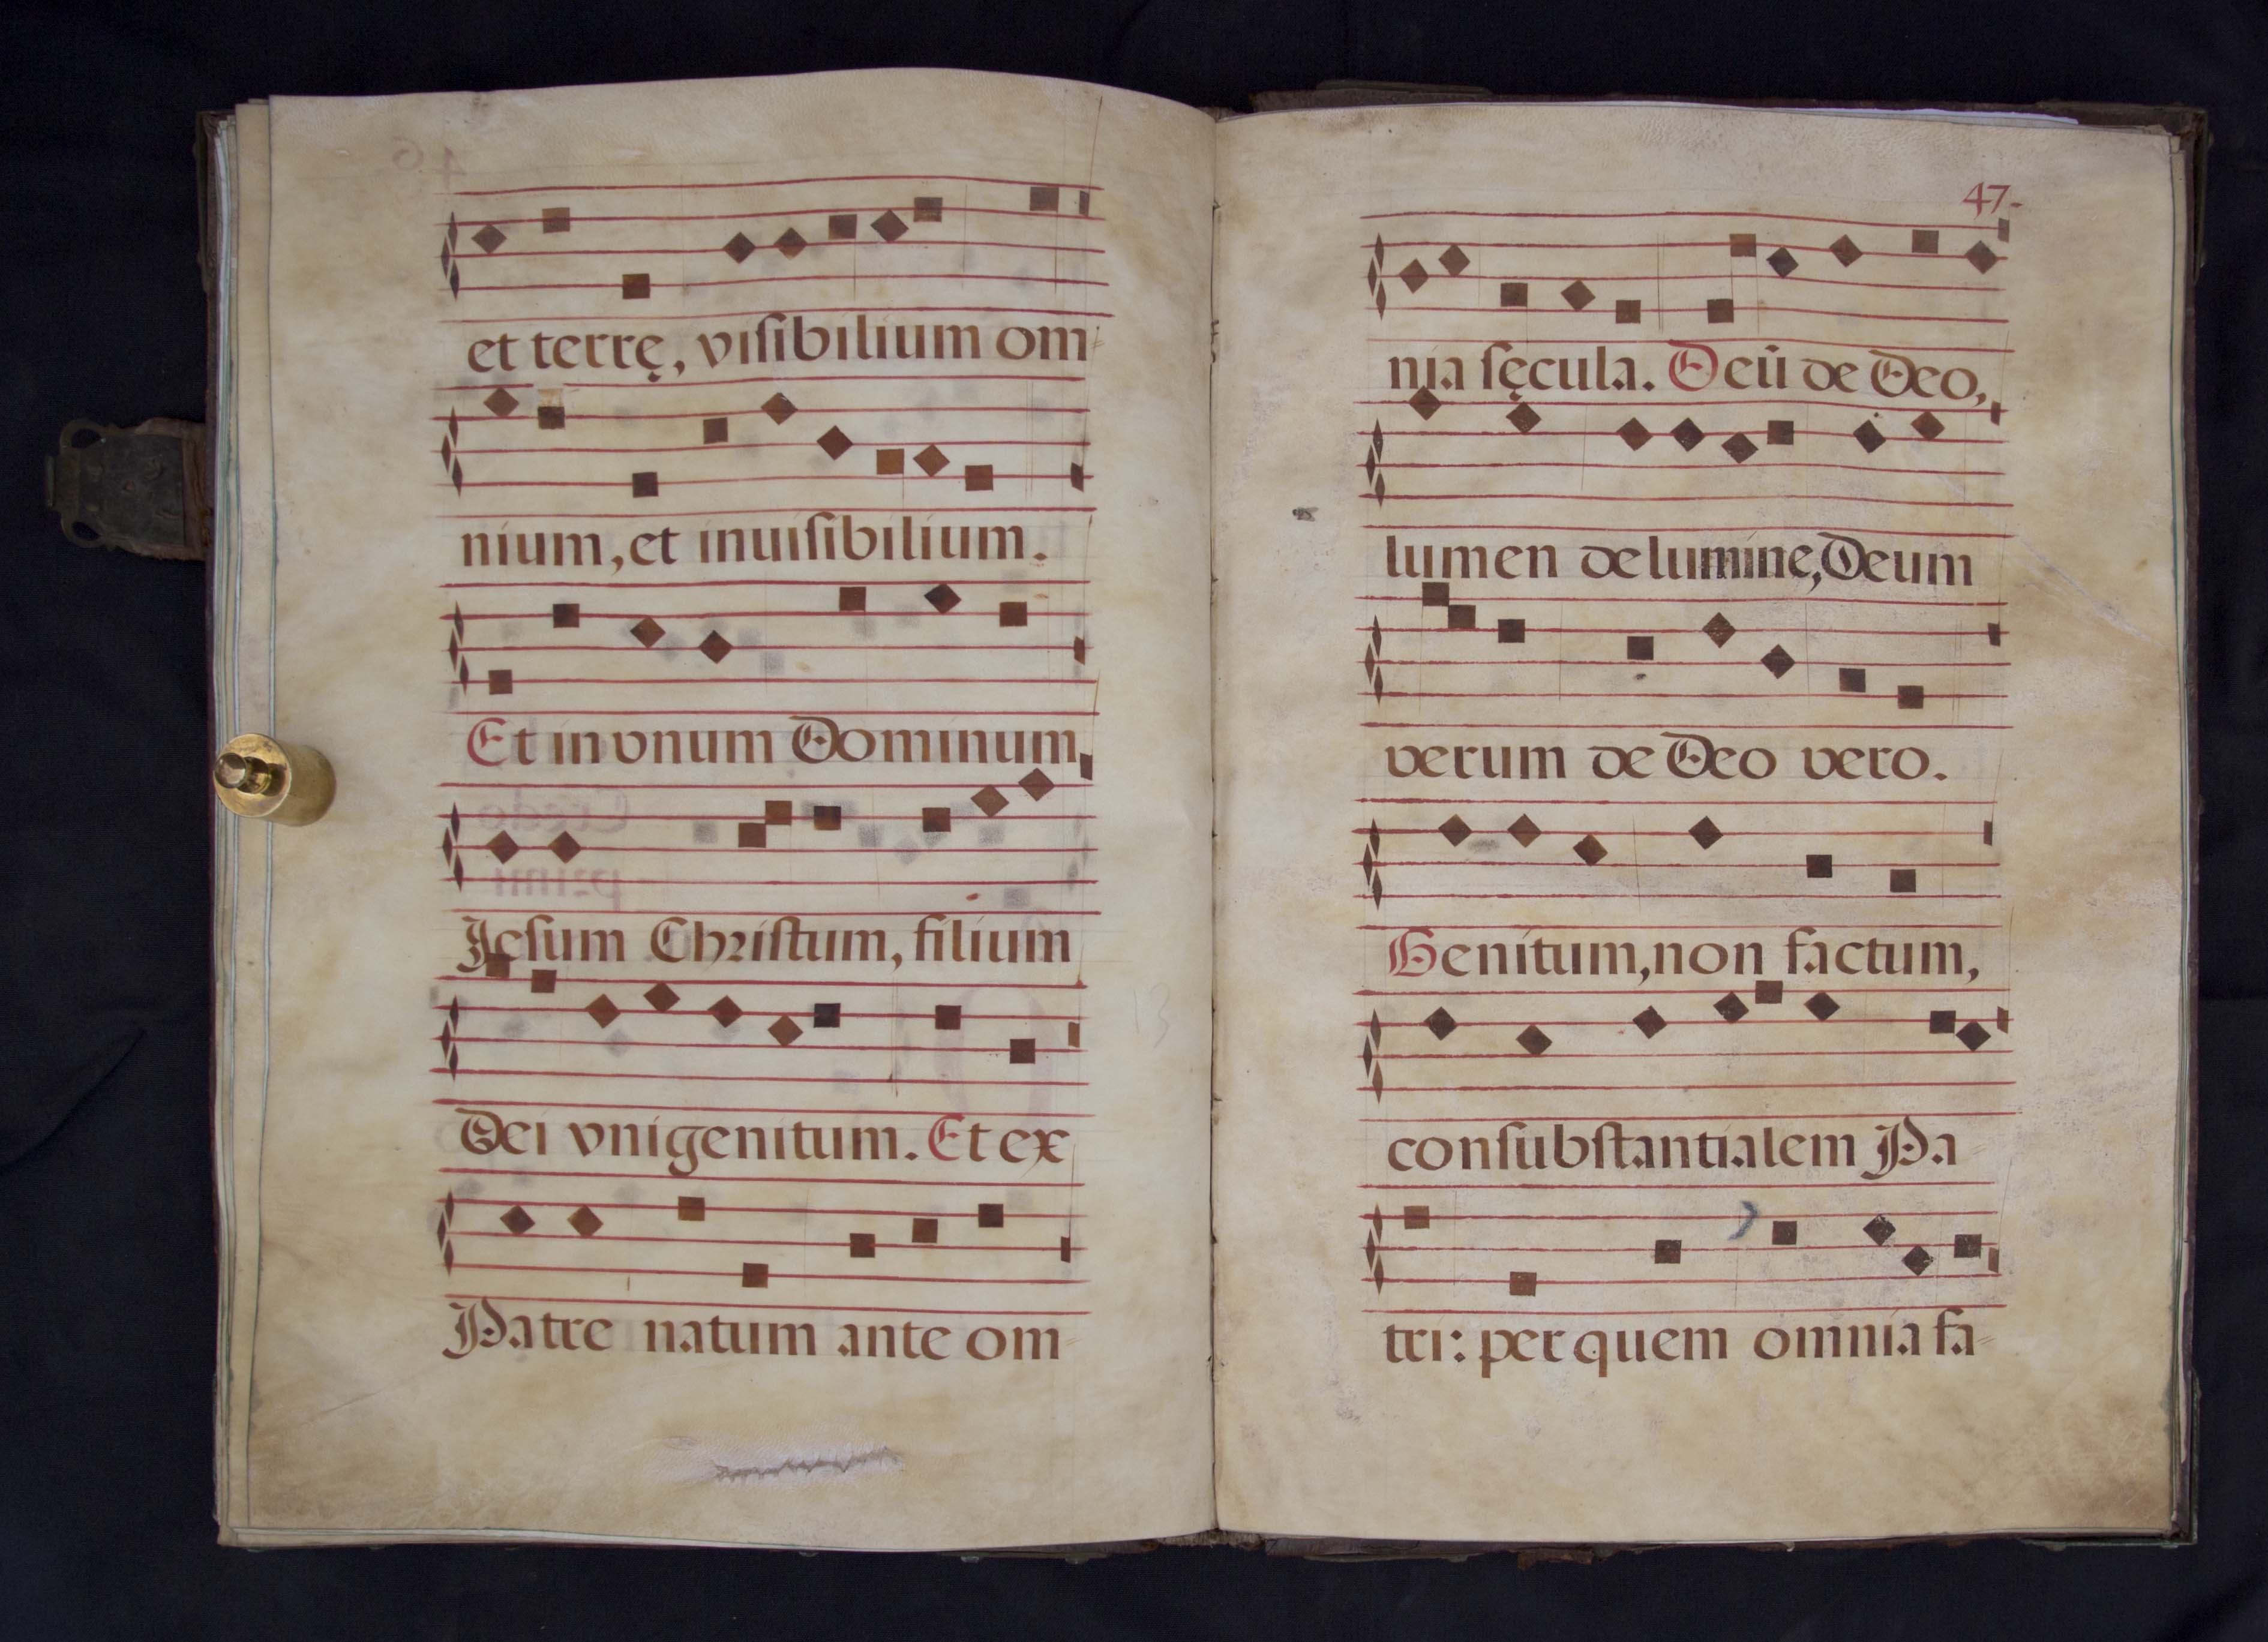 et terrę, viſibilium om=
nium, et inuiſibilium.
Et in vnum Dominum
Jeſum Chriſtum, filium
Dei vnigenitum. Et ex
Patre natum ante om=
47.
nia ſęcula. Deū de Deo,
lumen de lumine, Deum
verum de Deo vero.
Genitum, non factum,
conſubſtantialem Pa=
tri: per quem omnia fa=
13